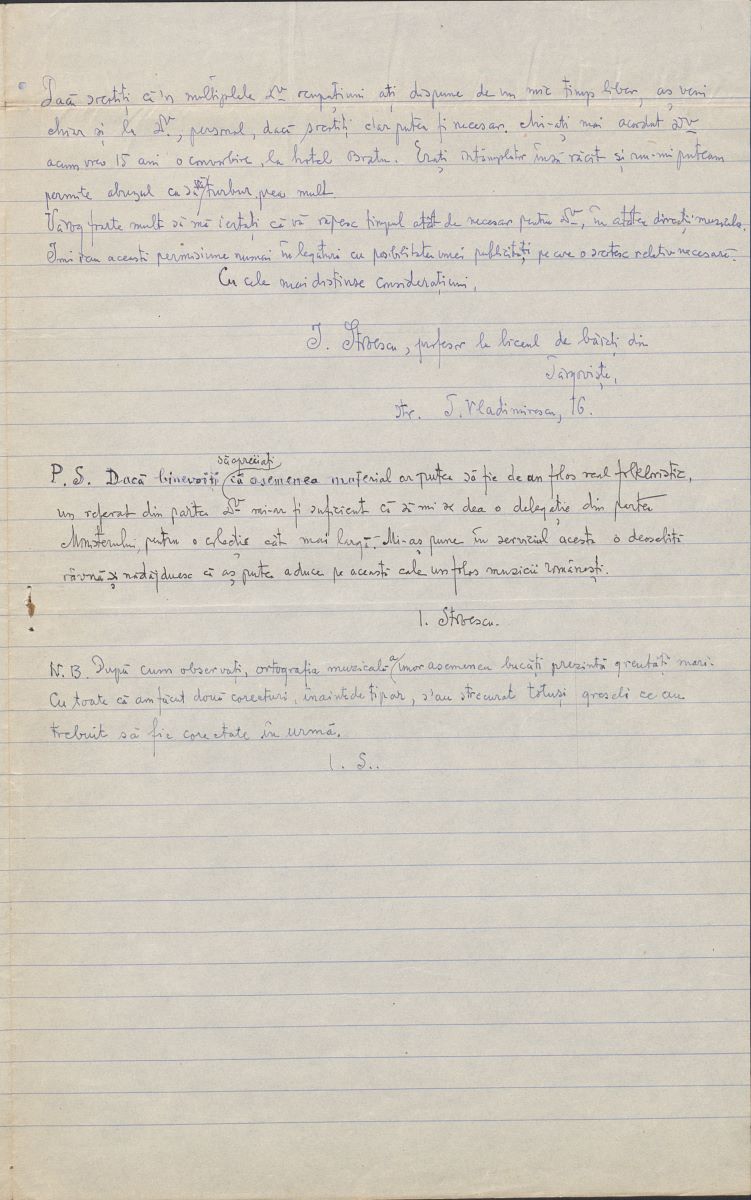 Dacă socotiți că'n multiplele Dv ocupațiuni ați dispune de un mic timp liber, aș veni
chiar și la Dv., personal, dacă socotiți c'ar putea fi necesar. Mi-ați mai acordat Dv
acum vreo 15 ani o convorbire, la hotel Bratu. Erați întâmplător însă răcit și nu-mi puteam
permite abuzul ca să vă turbur prea mult
Vă rog foarte mult să mă iertați că vă răpesc timpul atât de necesar pentru Dv, în atâtea direcții muzicale.
Îmi iau această permisiune numai în legături cu posibilitatea unei publicități pe care o socotesc relativ necesară.
Cu cele mai distinse considerațiuni,
I. Stroescu, profesor la liceul de băieți din
Târgoviște,
Str. T. Vladimirescu, 16.
P. S. Dacă binevoiți să apreciați că asemenea material ar putea să fie de un folos real folkloristic,
un referat din partea Dv mi-ar fi suficient că să mi se dea o delegație din partea
Ministerului, pentru o colecție cât mai largă. Mi-aș pune în serviciul acesta o deosebită
râvnă și nădăjduesc că aș putea aduce pe această cale un folos muzicii românești.
I. Stroescu.
N. B. După cum observați, ortografia muzicală a unor asemenea bucăți prezintă greutăți mari.
Cu toate că am făcut două corecturi, înainte de tipar, s'au strecurat totuși greșeli ce au
trebuit să fie corectate în urmă.
I. S..